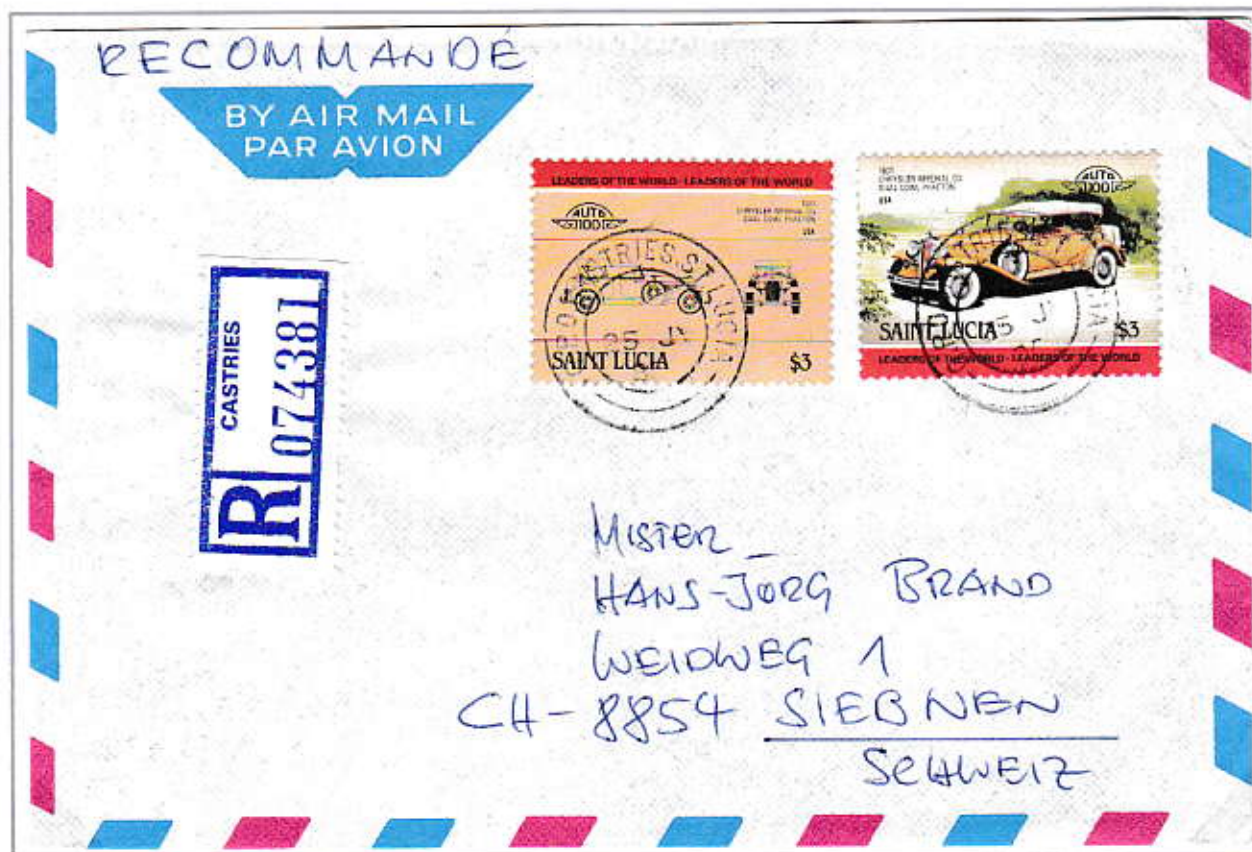 RECOMMANDÉ
BY AIR MAIL
PAR AVION
LEADERS OF THE WORLD - LEADERS OF THE WORLD
AUTO
100
CHRYSLER IMPERIAL CG
DUAL COWL PHAETON
USA
SAINT LUCIA $3
1931
CHRYSLER IMPERIAL CG
DUAL COWL PHAETON
USA
AUTO
100
SAINT LUCIA $3
LEADERS OF THE WORLD - LEADERS OF THE WORLD
CASTRIES ST. LUCIA
CASTRIES
R 074381
MISTER
HANS-JÖRG BRAND
WEIDWEG 1
CH-8854 SIEBNEN
SCHWEIZ